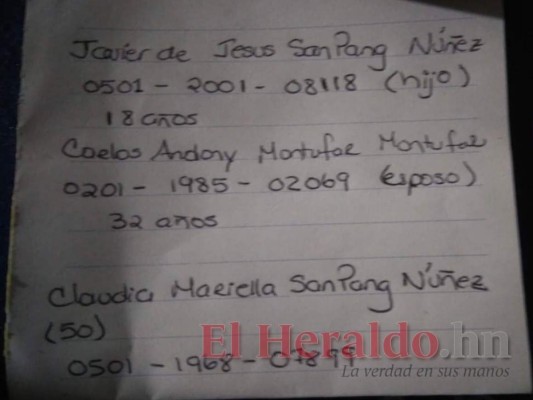 Javier de Jesus SanPang Núñez
0501 - 2001 - 08118 (hijo)
18 años
Caelos Andony Montufae Montufae
0201 - 1985 - 02069 (esposo)
32 años
Claudia Maeiella SanPang Núñez
(50)
0501 - 1968 - 07899
El Heraldo.hn
La verdad en sus manos